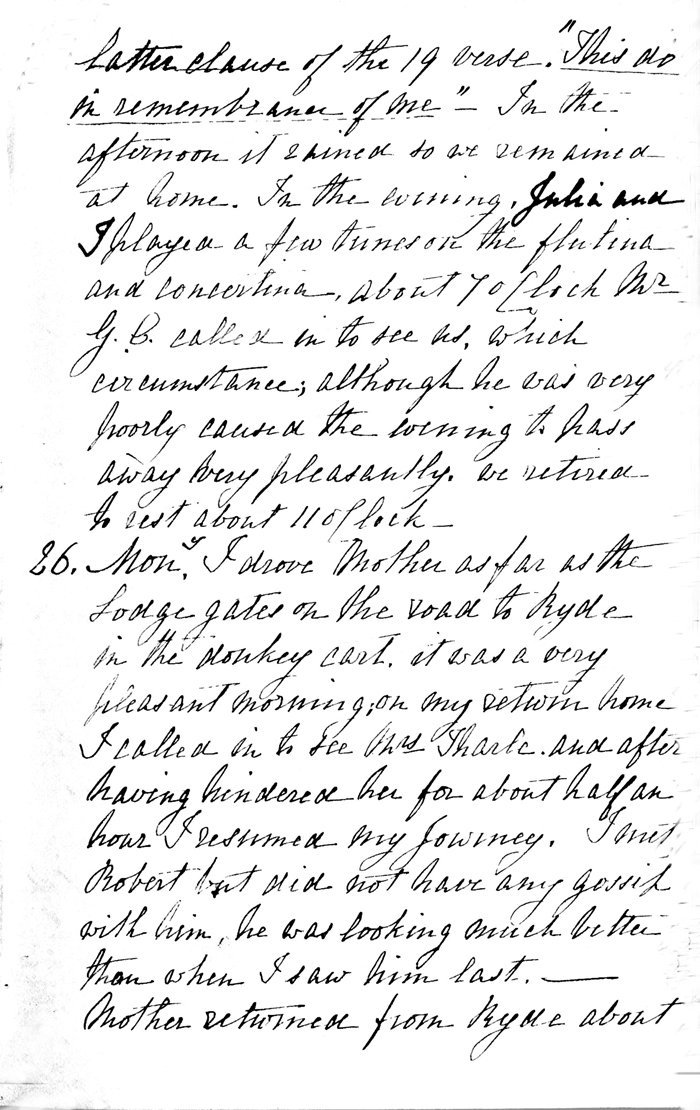 latter clause of the 19 verse. "This do
in remembrance of me" - In the
afternoon it rained so we remained
at home. In the evening, Julia and
I played a few tunes on the flutina
and concertina, about 7 oClock Mr
G. B. called in to see us, which
circumstance; although he was very
poorly caused the evening to pass
away very pleasantly. we retired
to rest about 11 oClock -
26. Mony. I drove Mother as far as the
Lodge gates on the road to Ryde
in the donkey cart. it was a very
pleasant morning; on my return home
I called in to see Mrs and after
having hindered her for about half an
hour I resumed my Journey. I met
Robert but did not have any gossip
with him, he was looking much better
than when I saw him last. —
Mother returned from Ryde about